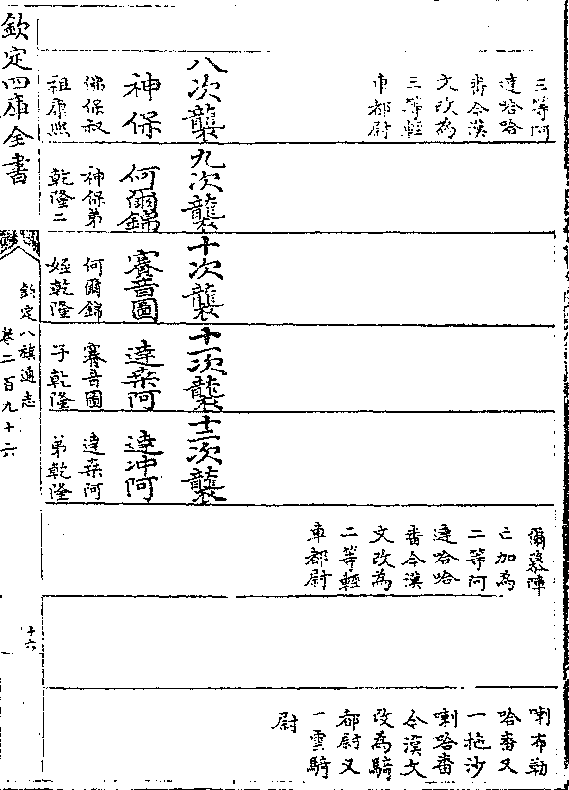 三等阿
達哈哈
番今漢
文改為
三等輕
車都尉
八次襲
神保
佛保叔
祖康熙
九次襲
何爾錦
神保弟
乾隆二
十次襲
賽音圖
何爾錦
姪乾隆
十一次襲
達桑阿
賽音圖
子乾隆
十二次襲
達冲阿
達桑阿
弟乾隆
爾慕陣
亡加為
二等阿
達哈哈
番今漢
文改為
二等輕
車都尉
喇布勒
哈番又
一拖沙
喇哈番
今漢文
改為騎
都尉又
一雲騎
尉
欽定四庫全書
欽定八旗通志
卷二百九十六
十六